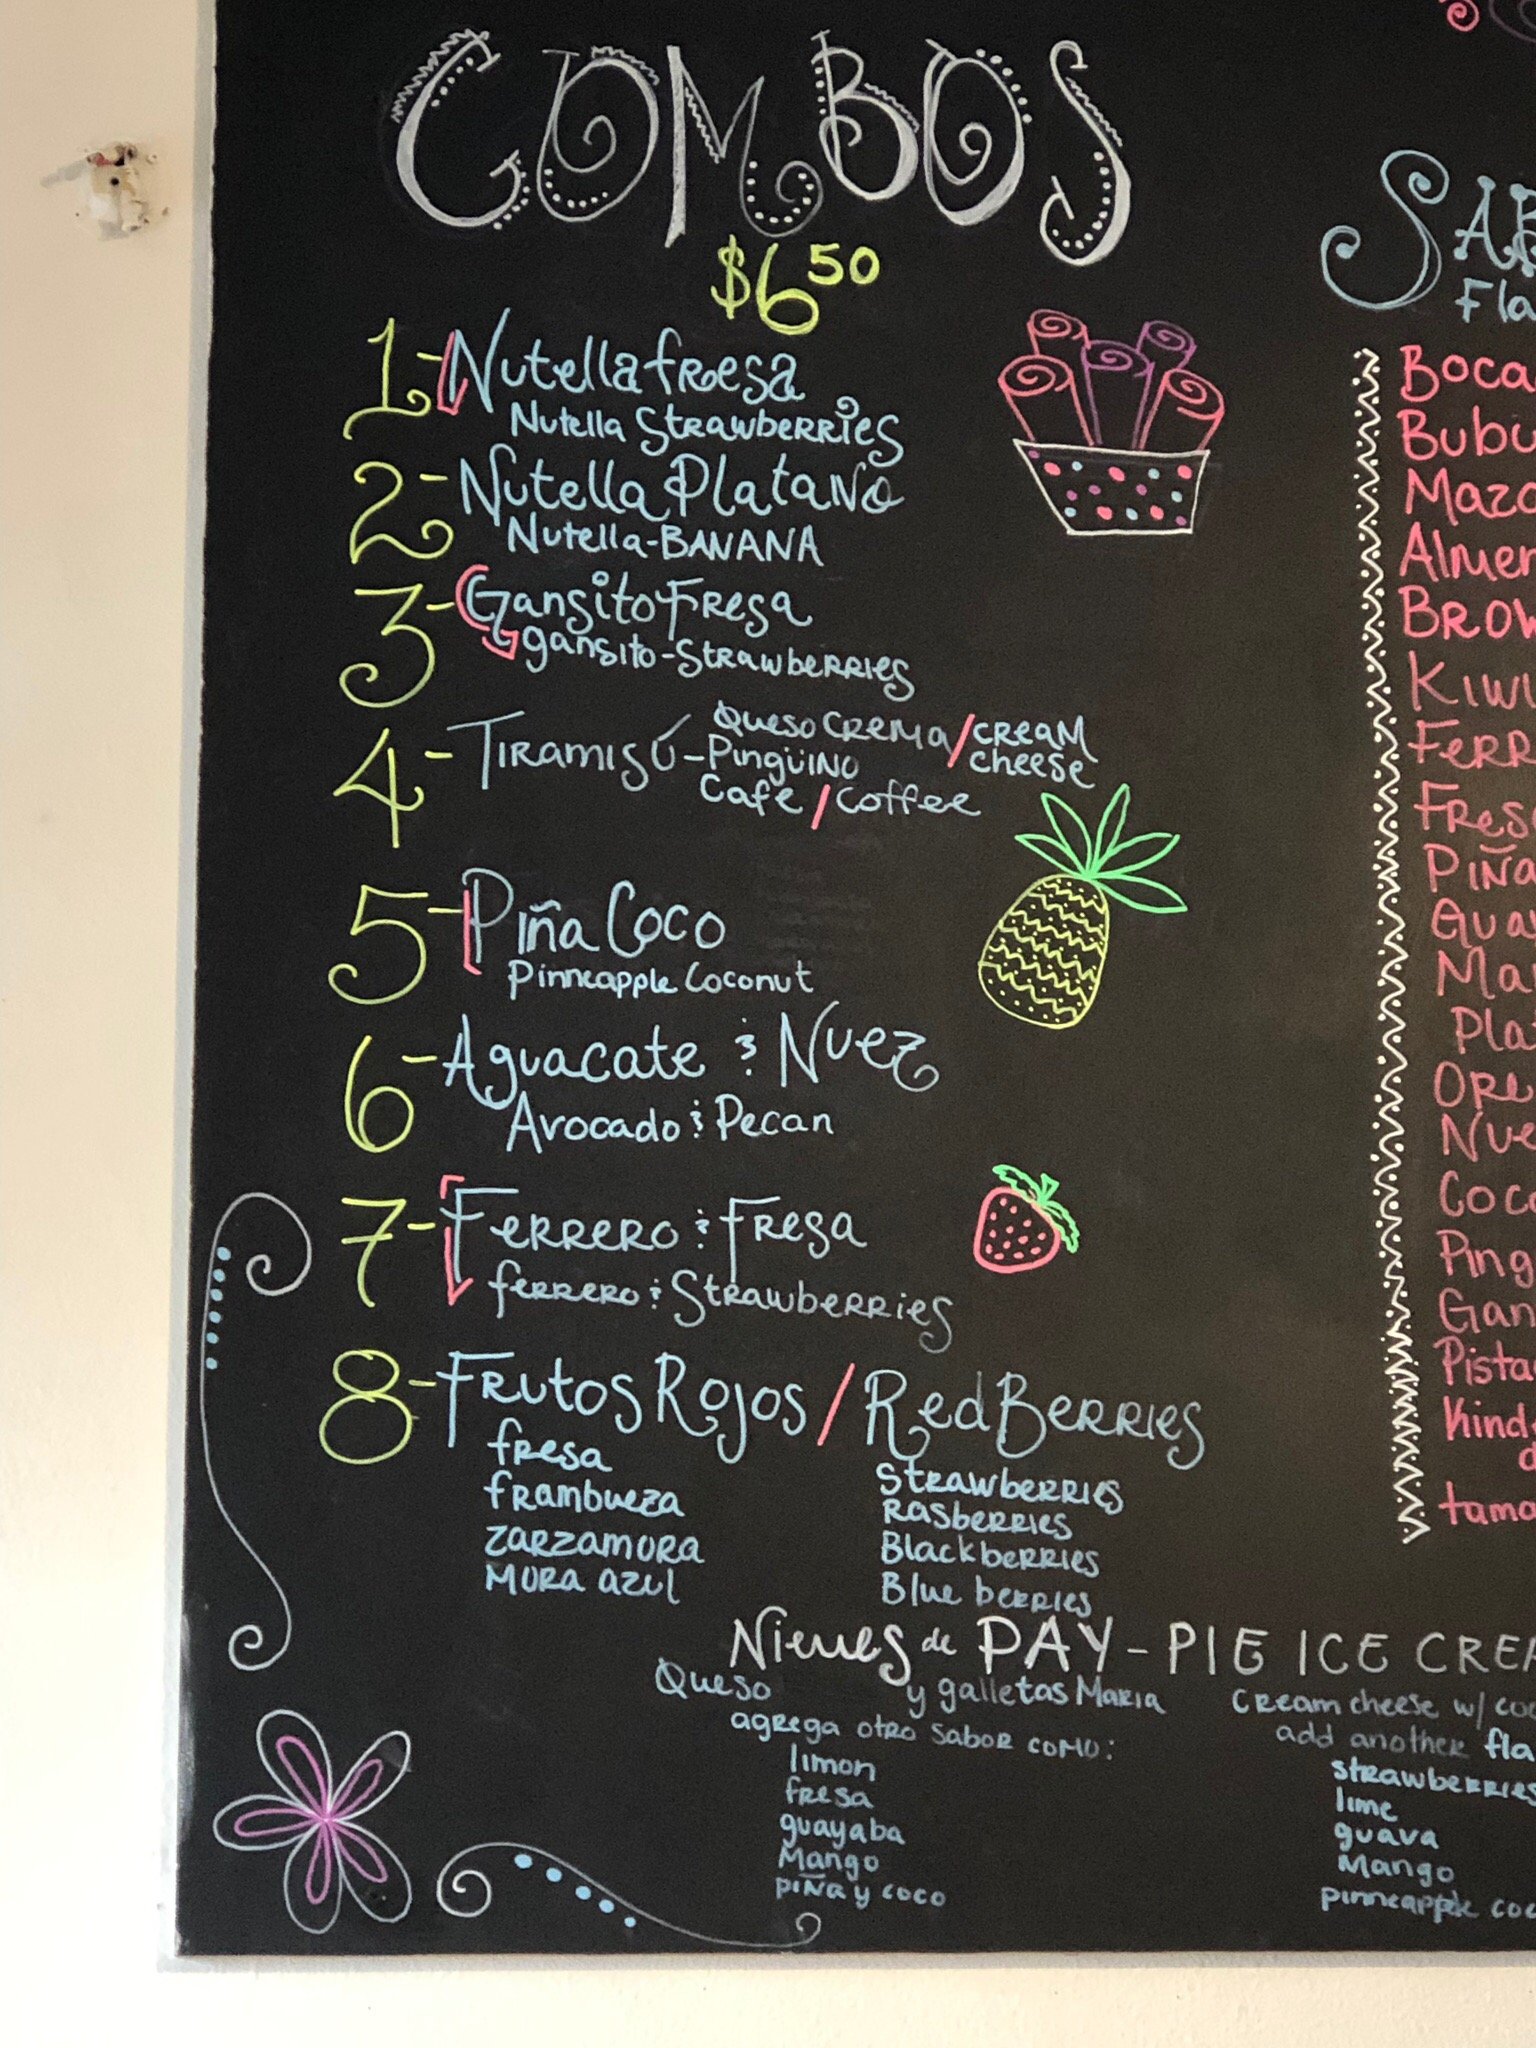 COMBOS
$6.50
1-Nutella fresa
Nutella Strawberries
2-Nutella Platano
Nutella-BANANA
3-Gansito Fresa
gansito-Strawberries
4-Tiramisú-Queso crema/cream cheese
Pingüino
Cafe/Coffee
5-Piña Coco
Pinneapple Coconut
6-Aguacate & Nuez
Avocado & Pecan
7-Ferrero & Fresa
ferrero & Strawberries
8-Frutos Rojos/Red Berries
fresa
frambueza
zarzamora
mora azul
Strawberries
Rasberries
Blackberries
Blue berries
Nieves de PAY-PIE ICE CREA
Queso y galletas Maria
agrega otro sabor como:
limon
fresa
guayaba
Mango
piña y coco
Cream cheese w/ co
add another fla
strawberries
lime
guava
Mango
pinneapple coc
SAB
Fla
Boca
Bubu
Maza
Almen
Brow
Kiwi
Ferr
Fres
Piña
Guay
Ma
Pla
Ore
Nue
Coco
Ping
Gan
Pista
Kind
tama